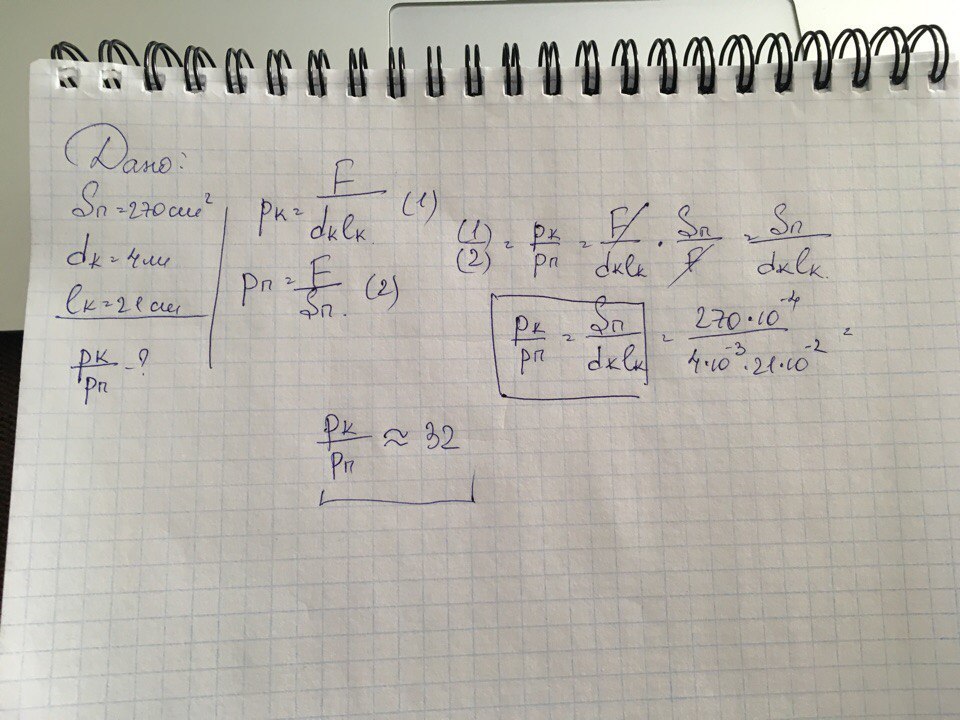 Дано:
Sп = 270 см²
dк = 4 мм
lк = 21 см
pк/pп - ?
pк = F/dкlк (1)
pп = F/Sп. (2)
(1)/(2) = pк/pп = F/dкlк · Sп/F = Sп/dкlк.
pк/pп = Sп/dкlк = 270·10⁻⁴/4·10⁻³·21·10⁻² =
pк/pп ≈ 32